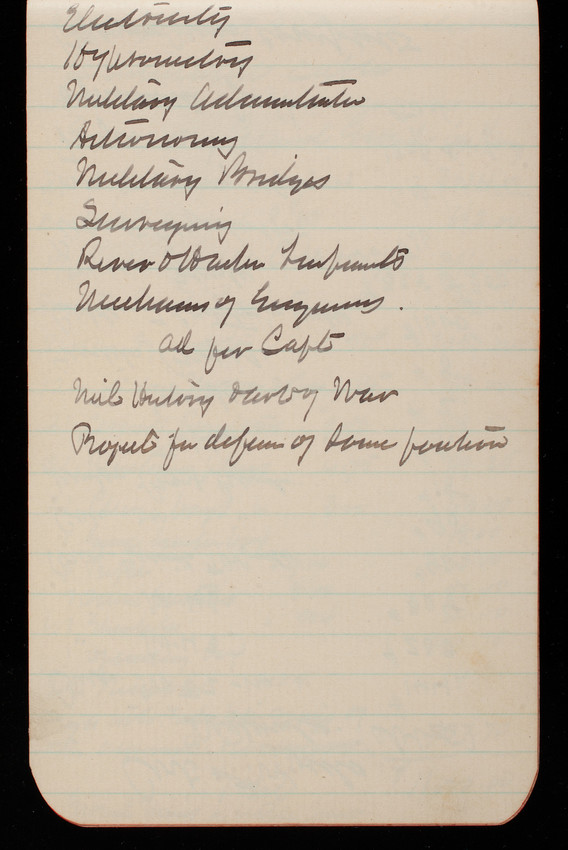 Electricity
Hypsometry
Military Administration
Astronomy
Military Bridges
Surveying
River & Harbor Improvmts
Mechanism of Engineering.
ad for Capt
Mil History & art of War
Project for defense of some position